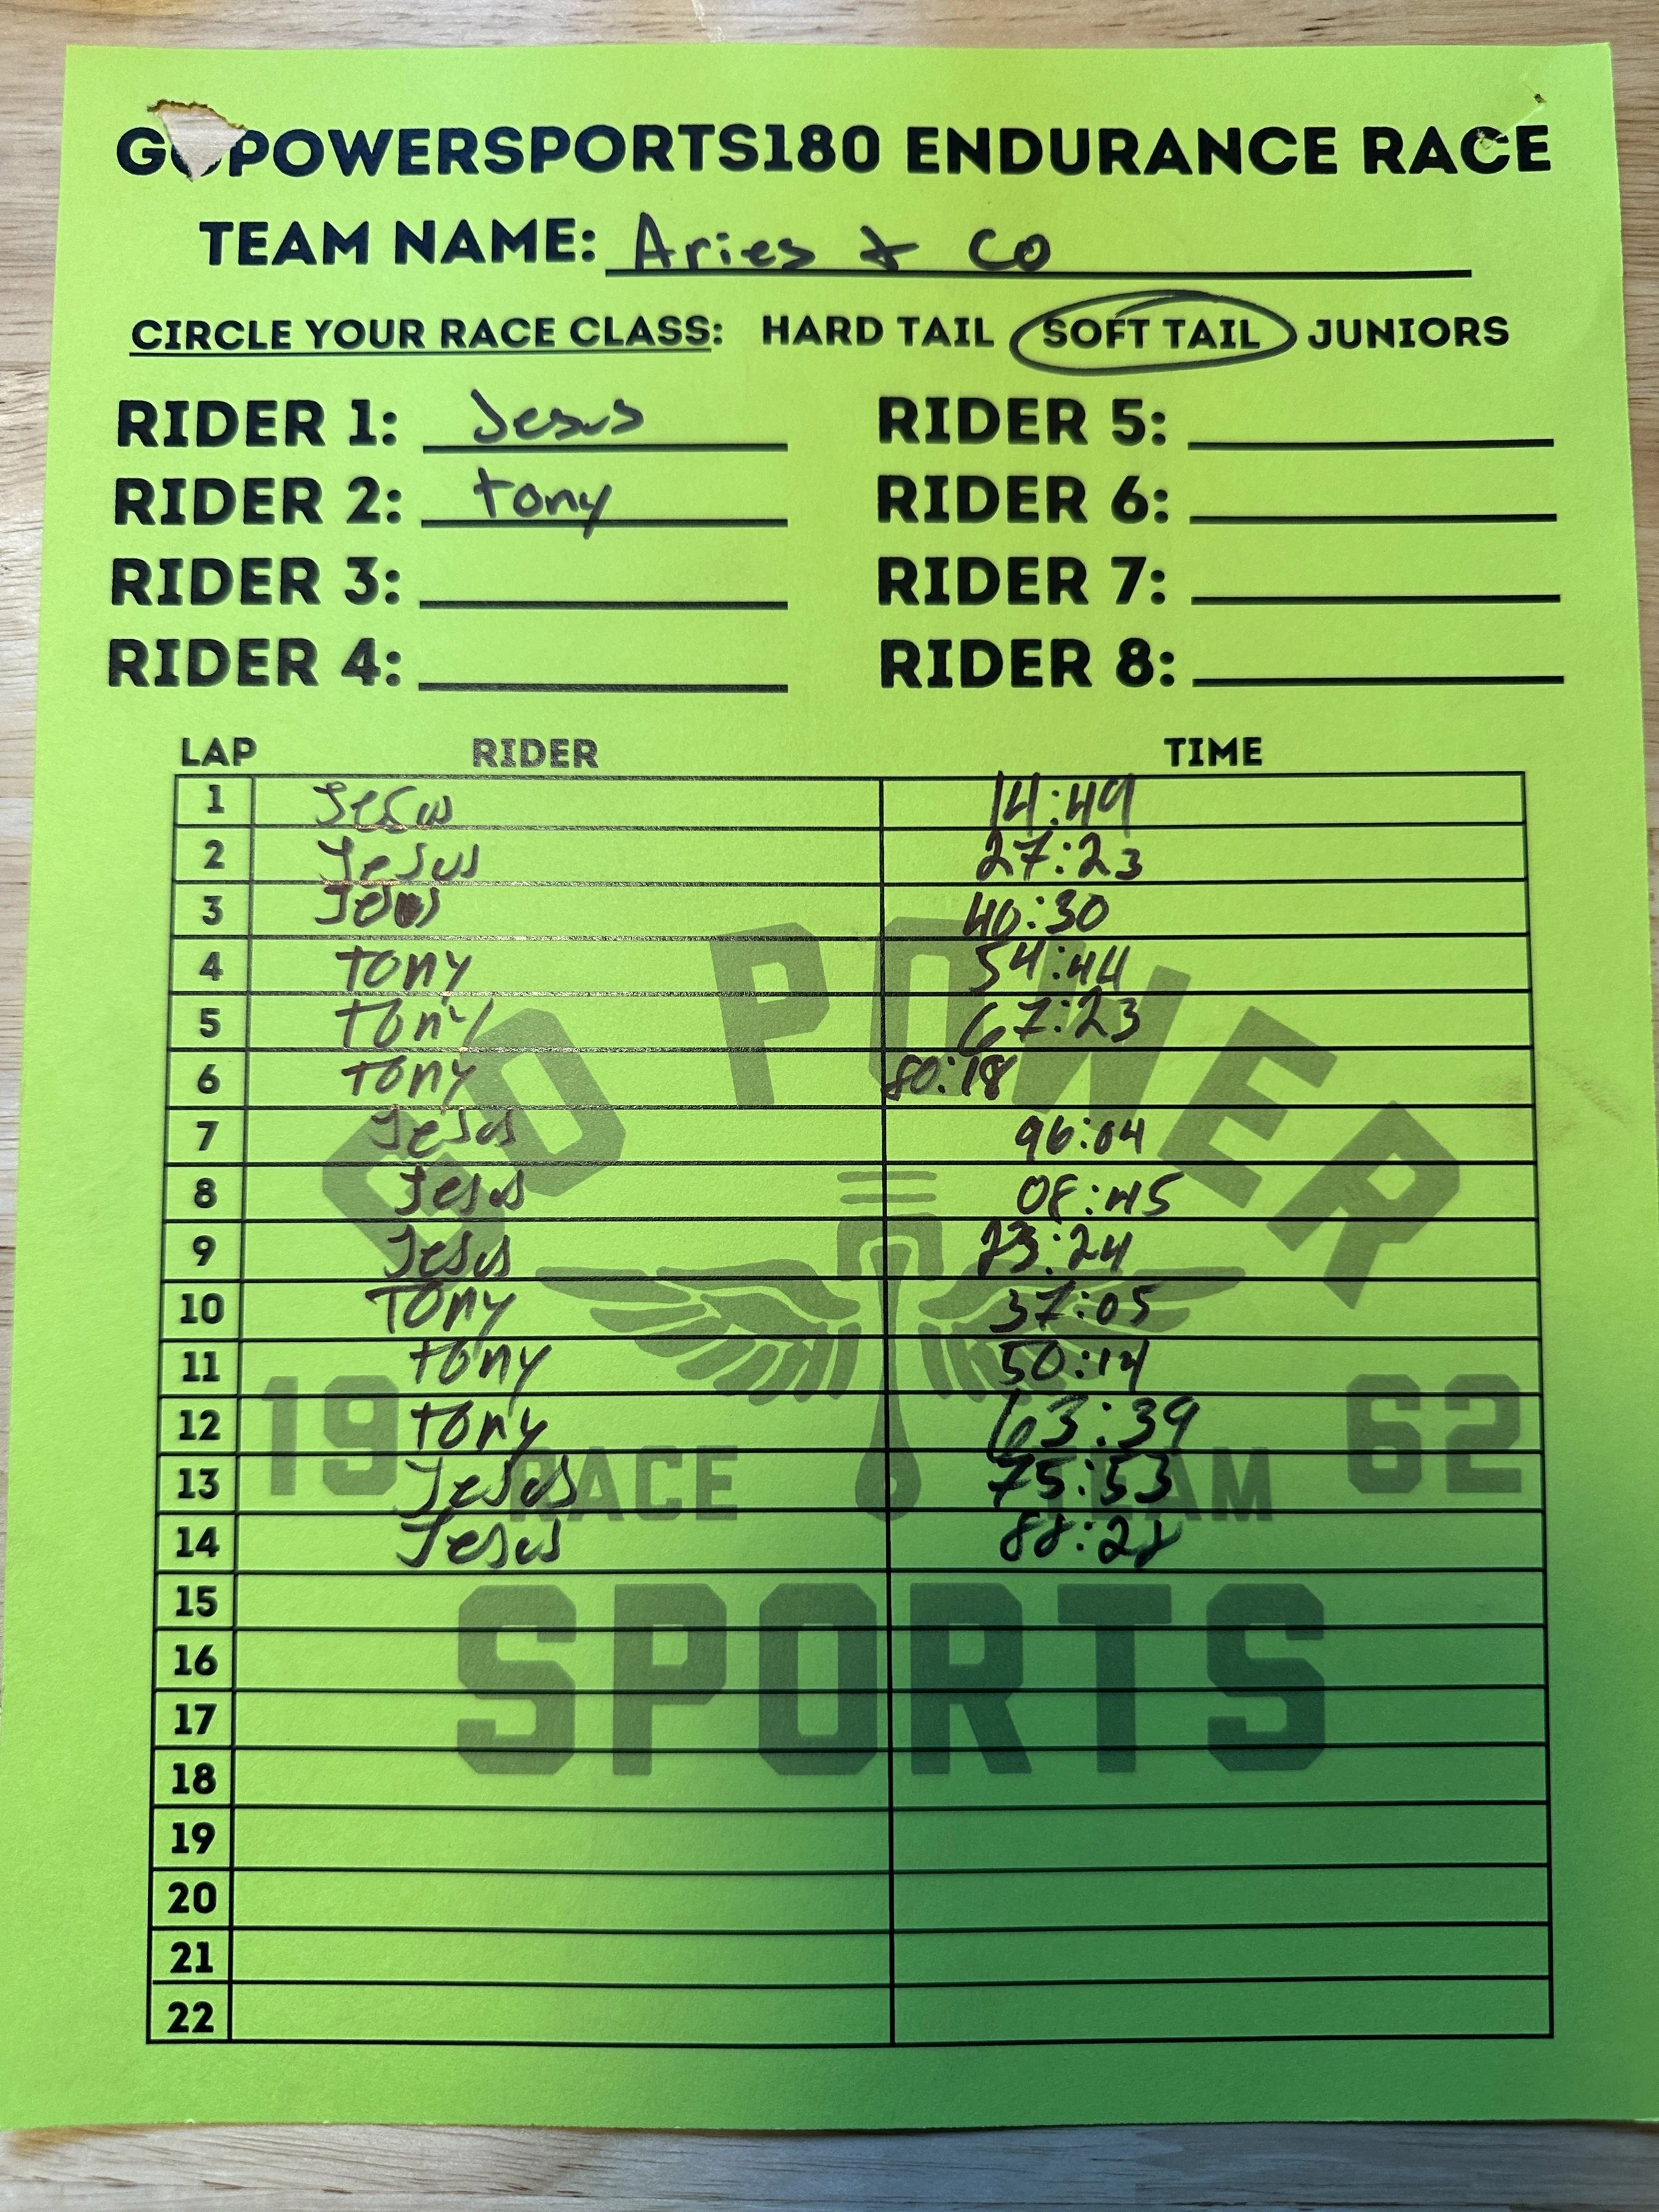 GOPOWERSPORTS180 ENDURANCE RACE
TEAM NAME: Aries & Co
CIRCLE YOUR RACE CLASS: HARD TAIL SOFT TAIL JUNIORS
RIDER 1: Jesus RIDER 5:
RIDER 2: tony RIDER 6:
RIDER 3: RIDER 7:
RIDER 4: RIDER 8:
LAP RIDER TIME
1 Jesus 14:49
2 Jesus 27:23
3 Jesus 40:30
4 tony 54:44
5 tony 67:23
6 tony 80:18
7 Jesus 96:04
8 Jesus 08:45
9 Jesus 23:24
10 Tony 37:05
11 tony 50:14
12 tony 63:39
13 Jesus 75:53
14 Jesus 88:28
15
16
17
18
19
20
21
22
GO POWER
19 62
RACE TEAM
SPORTS